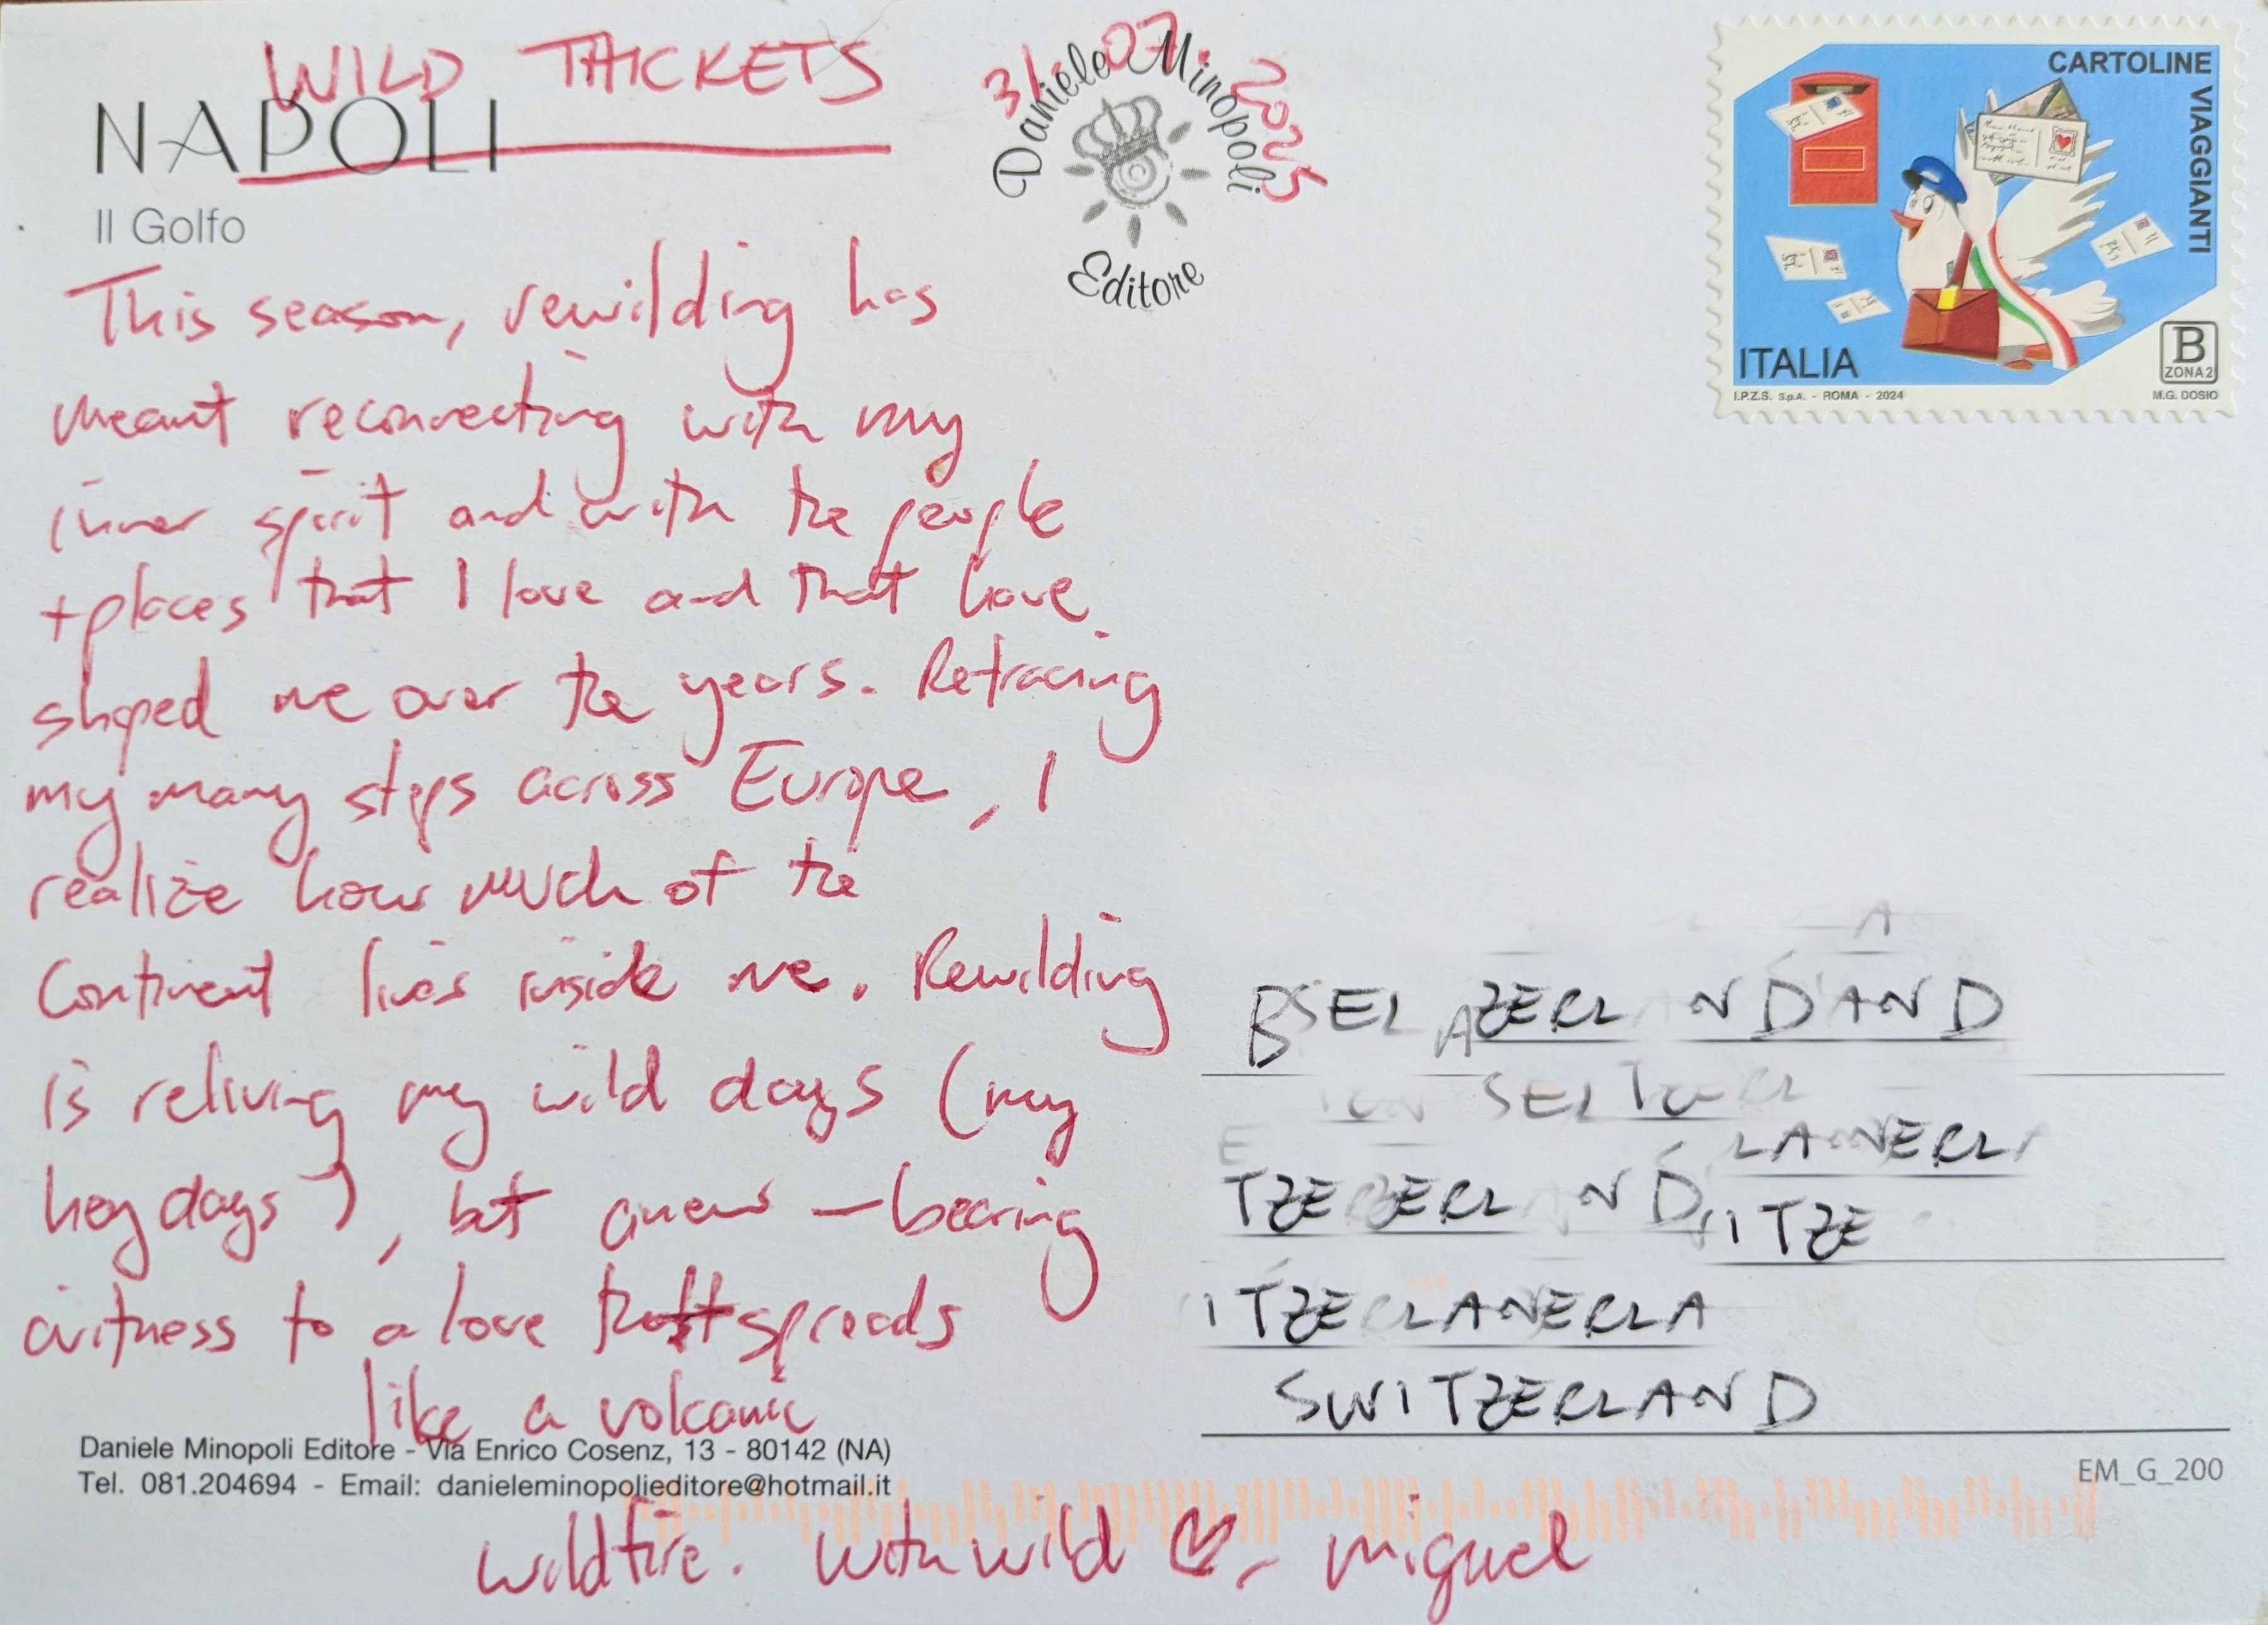 WILD THICKETS
31.07.2025
NAPOLI
Il Golfo
Daniele Minopoli
Editore
CARTOLINE VIAGGIANTI
ITALIA
B
ZONA 2
I.P.Z.S. S.p.A. - ROMA - 2024
M.G. DOSIO
This season, rewilding has
meant reconnecting with my
inner spirit and with the people
+ places that I love and that have
shaped me over the years. Retracing
my many steps across Europe, I
realize how much of the
continent lives inside me. Rewilding
is reliving my wild days (my
heydays), but anew – bearing
witness to a love that spreads
like a volcanic
Daniele Minopoli Editore - Via Enrico Cosenz, 13 - 80142 (NA)
Tel. 081.204694 - Email: danieleminopolieditore@hotmail.it
wildfire. With wild ♡, miguel
SWITZERLAND
EM_G_200